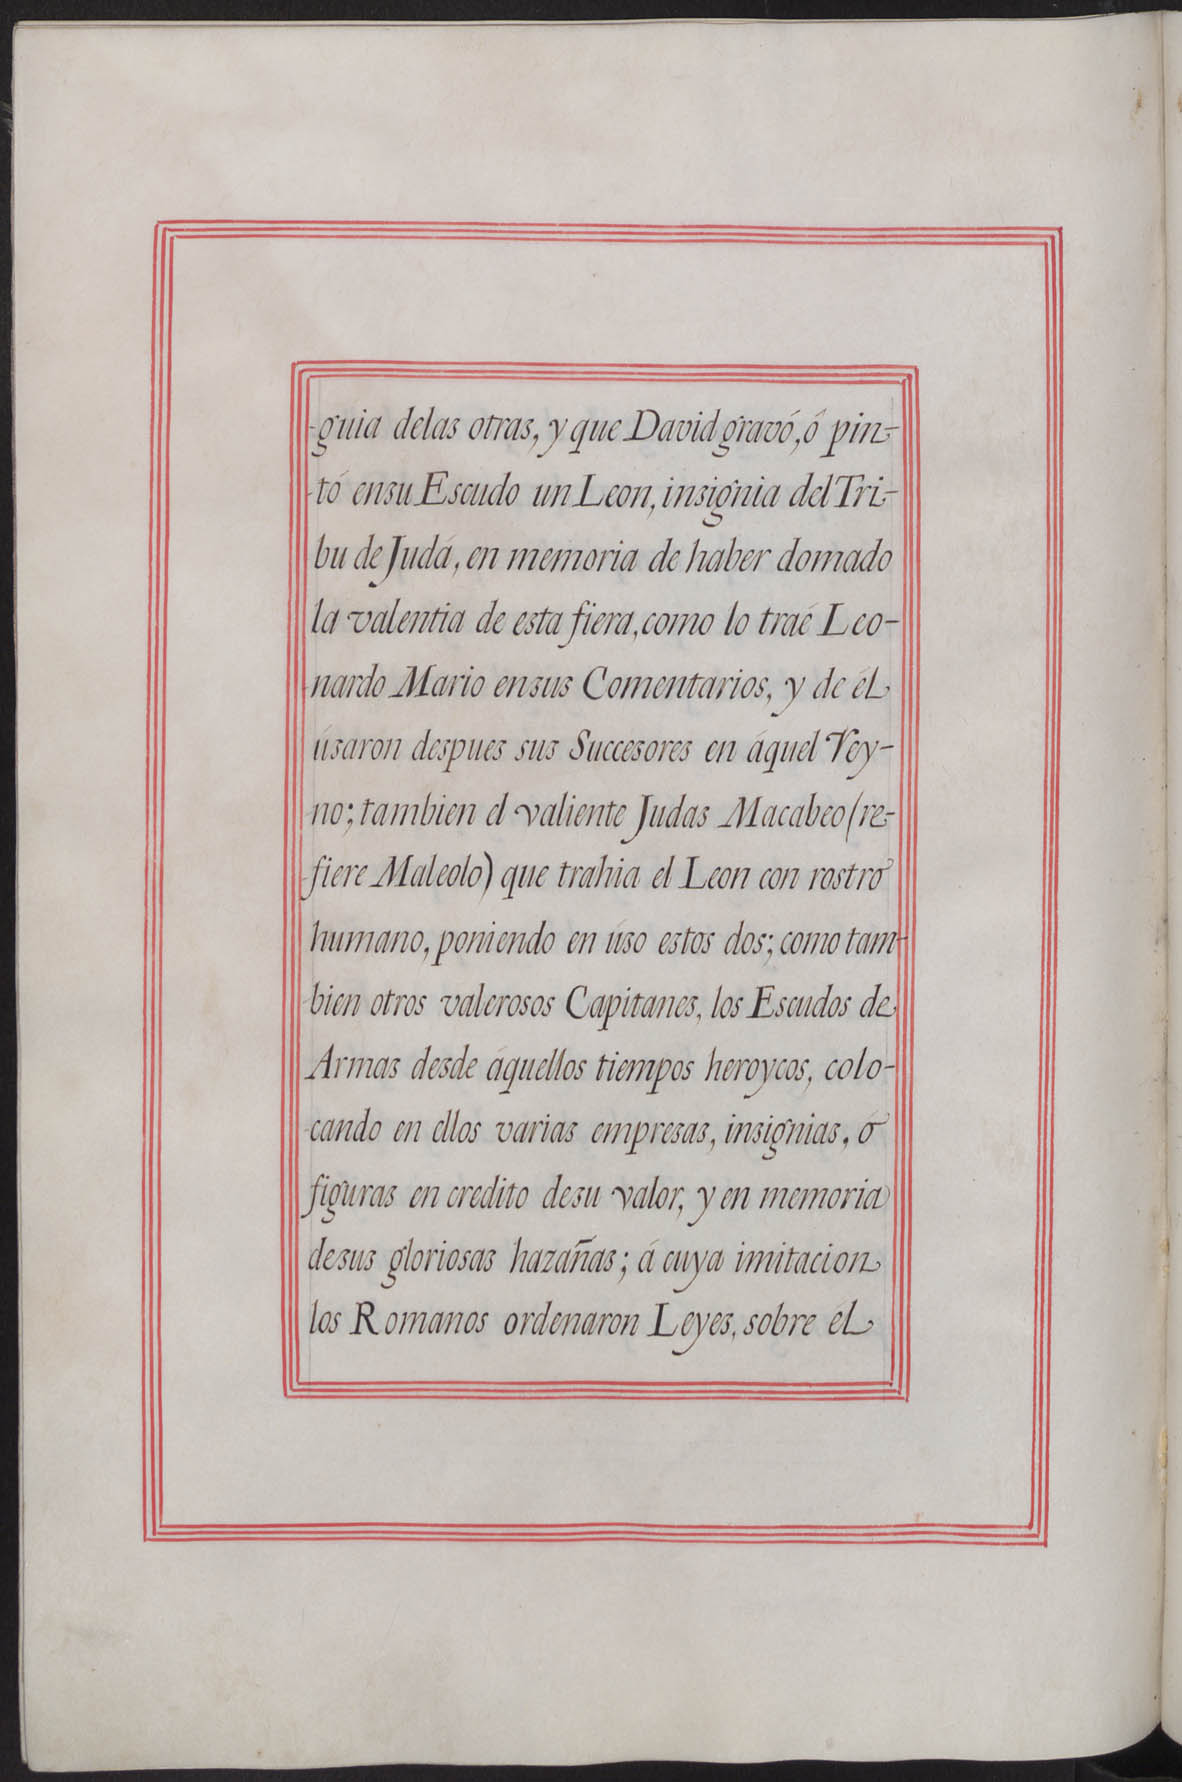 guia delas otras, y que David gravó, ó pin-
tó ensu Escudo un Leon, insignia del Tri-
bu de Judá, en memoria de haber domado
la valentia de esta fiera, como lo traé Leo-
nardo Mario ensus Comentarios, y de él
úsaron despues sus Succesores en áquel Rey-
no; tambien el valiente Judas Macabeo (re-
fiere Maleolo) que trahia el Leon con rostro
humano, poniendo en úso estos dos; como tam-
bien otros valerosos Capitanes, los Escudos de
Armas desde áquellos tiempos heroycos, colo-
cando en ellos varias empresas, insignias, ó
figuras en credito desu valor, y en memoria
desus gloriosas hazañas; á cuya imitacion
los Romanos ordenaron Leyes, sobre él